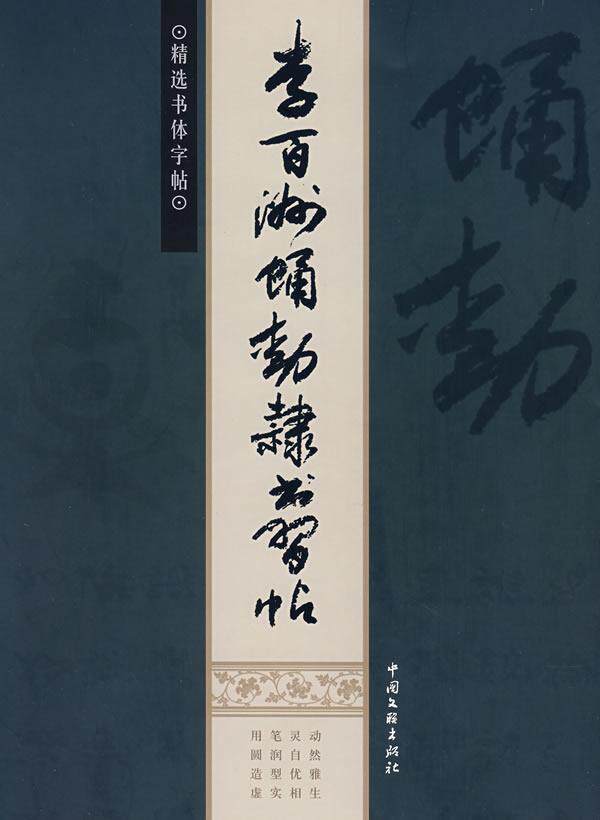 精选书体字帖
李百洲蛹動隸书習帖
蛹動
用笔灵动
圆润自然
造型优雅
虚实相生
中国文联出版社